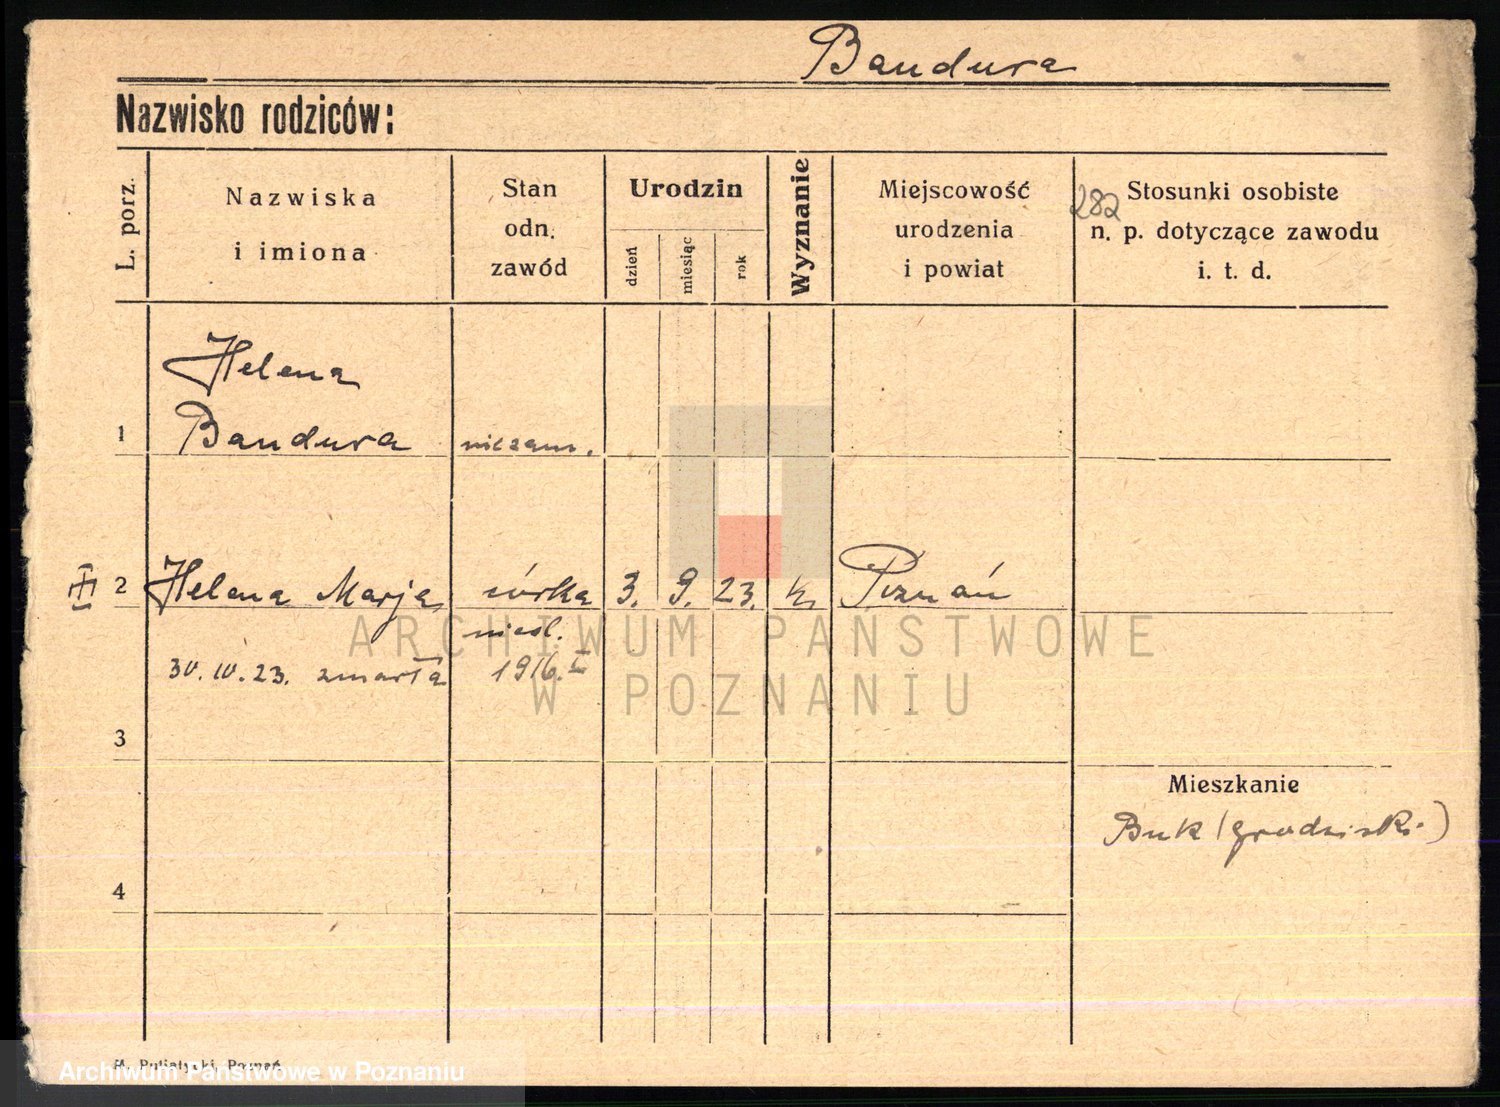 Bandura
Nazwisko rodziców:
L. porz.
Nazwiska
i imiona
Stan
odn.
zawód
Urodzin
dzień
miesiąc
rok
Wyznanie
Miejscowość
urodzenia
i powiat
282
Stosunki osobiste
n. p. dotyczące zawodu
i. t. d.
Helena
1 Bandura niezam.
2 Helena Marja córka 3. 9. 23. k. Poznań
nieśl.
30. IV. 23. zmarła 1916. I
3
Mieszkanie
Buk (grodziski)
4
ARCHIWUM PAŃSTWOWE
W POZNANIU
Poznań
Archiwum Państwowe w Poznaniu